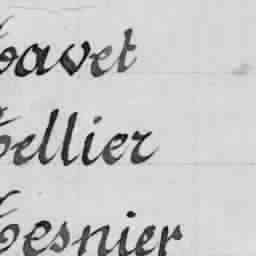 Tavet
Tellier
Tesnier